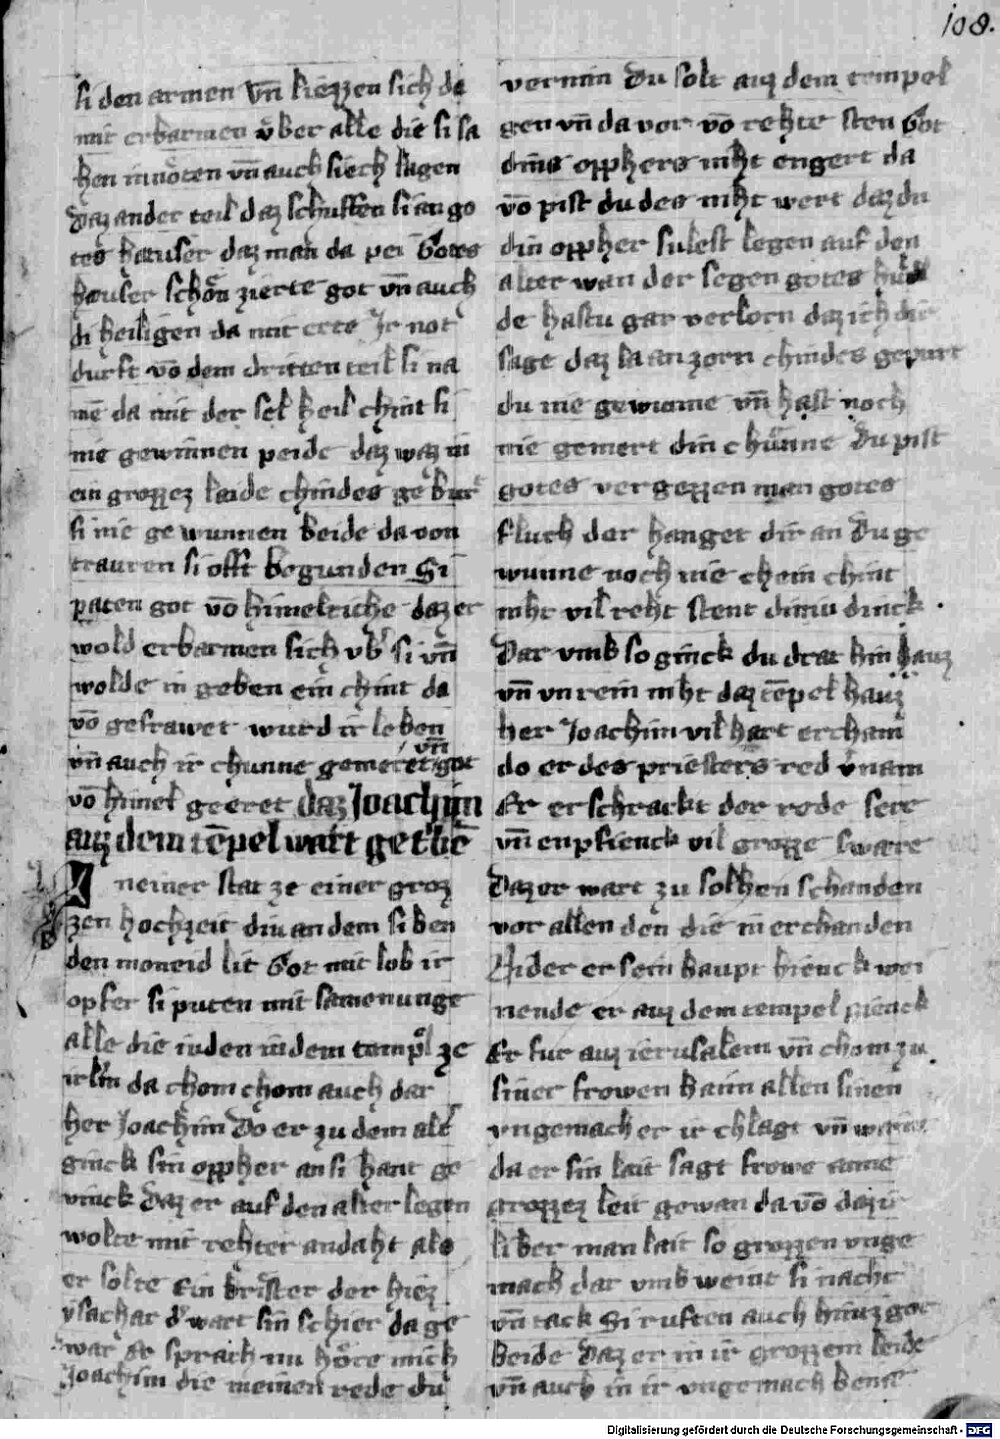 108.
si den armen vn̄ liezzen sich da
mit erbarmen vͤber alle die si sa
hen in nöten vn̄ auch siech ligen
Daz ander teil daz schuffen si an go
tes hauser daz man da pei Gotes
hauser schön zierte got vn̄ auch
di heiligen da mit erte Jr not
durft vō dem dritten teil si na
mē da mit der sel heil chint si
nie gewinnen peide daz waz in
ein grozzez laide chindes gebur
si nie gewunnen beide da von
trauren si offt begunden Si
paten got vō himelriche daz er
wold erbarmen sich vb' si vn̄
wolde in geben ein chint da
vō gefrawet wurd ir leben
vn̄ auch ir chunne gemeret vn̄ got
vō himel geeret daz Joachim
auz dem tēpel wart getbē
neiner stat ze einer groz
zen hochzeit diu an dem siben
den moneid lit Got mit lob ir
opfer si puten mit samenunge
alle die iuden in dem tempel ze
irl'm da chom chom auch dar
her Joachim Do er zu dem alt'
ginck sin oppher an si hant ge
vinck Daz er auf den alter legen
wolte mit rehter andaht als
er solte Ein brister der hiez
ysachar d' wart sin schier da ge
war Er sprach nu höre mich
Joachim die meinen rede du
vernim Du solt auz dem tempel
gen vn̄ da vor vō rehte sten Got
dins opphers niht engert da
vō pist du des niht wert daz du
din oppher sulest legen auf den
alter wan der segen gotes
de hastu gar verlorn daz ich dir
sage daz sa an zorn chindes gepurt
du nie gewunne vn̄ hast noch
nie gemert din chünne Du pist
gotes vergezzen man gotes
fluch der hanget dir an Du ge
wunne noch nie chein chint
niht vil reht stent diniu dinck .
Dar vmb so ginck du drat hin hauz
vn̄ vnrein niht daz tēpel hauz
her Joachim vil hart ercham
do er des priesters red v'nam
Er erschrackt der rede sere
vn̄ enpfienck vil grozze swære
Daz er wart zu solhen schanden
vor allen den die in erchanden
Nider er sein haupt hienck wei
nende er auz dem tempel gienck
Er fur auz ierusalem vn̄ chom zu
siner frowen haim allen sinen
vngemach er ir chlagt vn̄
da er sin lait sagt frowe anne
grozzez leit gewan da vō daz ir
liber man lait so grozzen vnge
mach dar vmb weint si nacht
vn̄ tack Si ruften auch hinz got
beide Daz er in ir grozzem leide
vn̄ auch in ir vngemach
Digitalisierung gefördert durch die Deutsche Forschungsgemeinschaft - DFG